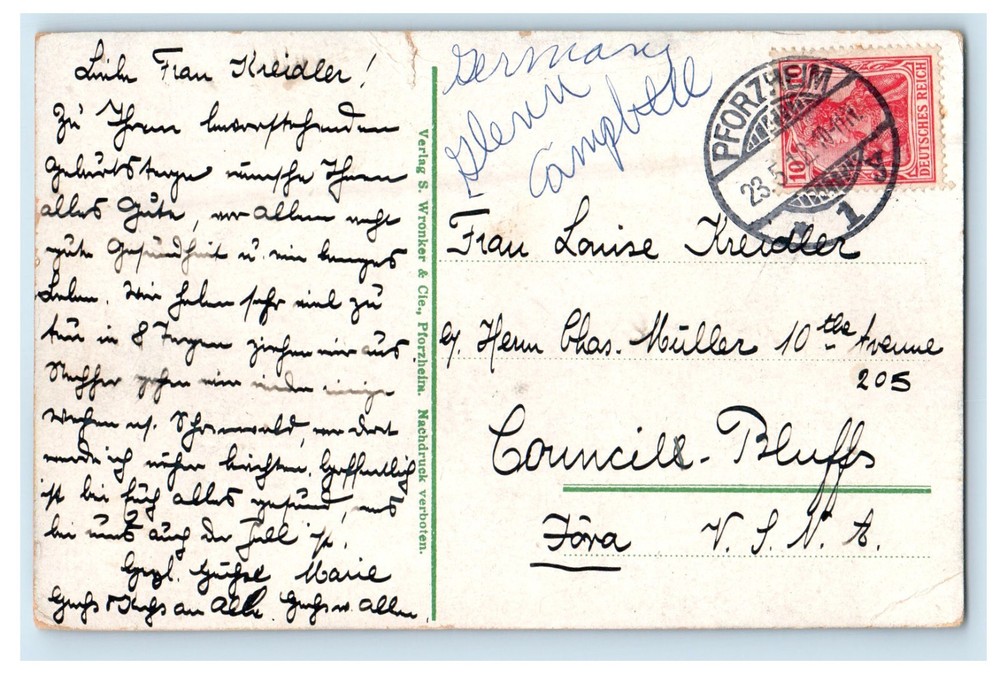 Liebe Frau Kreidler!
Zu Ihrem bevorstehenden
Geburtstage wünsche Ihnen
alles Gute, vor allem recht
gute Gesundheit u. ein langes
Leben. Wir haben sehr viel zu
tun in 8 Tagen ziehen wir aus.
Nachher gehen wir wieder einige
Wochen n. Schwarzwald, von dort
werde ich näher berichten. Hoffentlich
ist bei Euch alles gesund, was
bei uns auch der Fall ist.
Herzl. Grüße Marie
Gruß Kuss an Alle. Gruß v. Allen
Verlag S. Wronker & Cie., Pforzheim. Nachdruck verboten.
Germany
Glenn
Campbell
PFORZHEIM
23.5.
1
10
DEUTSCHES REICH
Frau Louise Kreidler
Herrn Chas. Müller 10 the Avenue
205
Councill-Bluffs
Jova V. S. N. A.